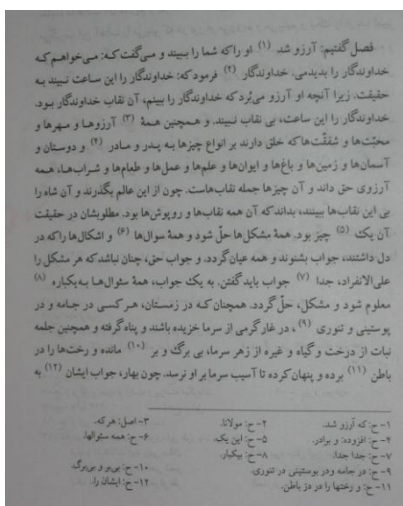 فصل گفتیم: آرزو شد (۱) او را که شما را ببیند و می‌گفت که: می‌خواهم که
خداوندگار را بدیدمی. خداوندگار (۲) فرمود که: خداوندگار را این ساعت نبیند به
حقیقت. زیرا آنچه او آرزو می‌برد که خداوندگار را بینم، آن نقاب خداوندگار بود.
خداوندگار را این ساعت، بی نقاب نبیند. و همچنین همهٔ (۳) آرزوها و مهرها و
محبّت‌ها و شفقّت‌ها که خلق دارند بر انواع چیزها به پدر و مادر (۴) و دوستان و
آسمان‌ها و زمین‌ها و باغ‌ها و ایوان‌ها و علم‌ها و عمل‌ها و طعام‌ها و شراب‌ها، همه
آرزوی حق داند و آن چیزها جمله نقاب‌هاست. چون از این عالم بگذرند و آن شاه را
بی این نقاب‌ها ببینند، بدانند که آن همه نقاب‌ها و روپوش‌ها بود. مطلوبشان در حقیقت
آن یک (۵) چیز بود. همهٔ مشکل‌ها حلّ شود و همهٔ سوال‌ها (۶) و اشکال‌ها را که در
دل داشتند، جواب بشنوند و همه عیان گردد. و جواب حق، چنان نباشد که هر مشکل را
علی‌الانفراد، جدا (۷) جواب باید گفتن. به یک جواب، همهٔ سئوال‌ها به یکباره (۸)
معلوم شود و مشکل، حلّ گردد. همچنان که در زمستان، هر کسی در جامه و در
پوستینی و تنوری (۹)، در غار گرمی از سرما خزیده باشند و پناه گرفته و همچنین جمله
نبات از درخت و گیاه و غیره از زهر سرما، بی برگ و بر (۱۰) مانده و رخت‌ها را در
باطن (۱۱) برده و پنهان کرده تا آسیب سرما بر او نرسد. چون بهار، جواب ایشان (۱۲) به
۱- ح: که آرزو شد. ۲- ح: مولانا. ۳- اصل: هر که.
۴- ح: افزوده: و برادر. ۵- ح: این یک. ۶- ح: همه سئوالها.
۷- ح: جدا جدا. ۸- ح: بیکبار.
۹- ح: در جامه و در پوستینی در تنوری. ۱۰- ح: بی‌بر و بی‌برگ.
۱۱- ح: و رختها را در دژ باطن. ۱۲- ح: ایشان را.